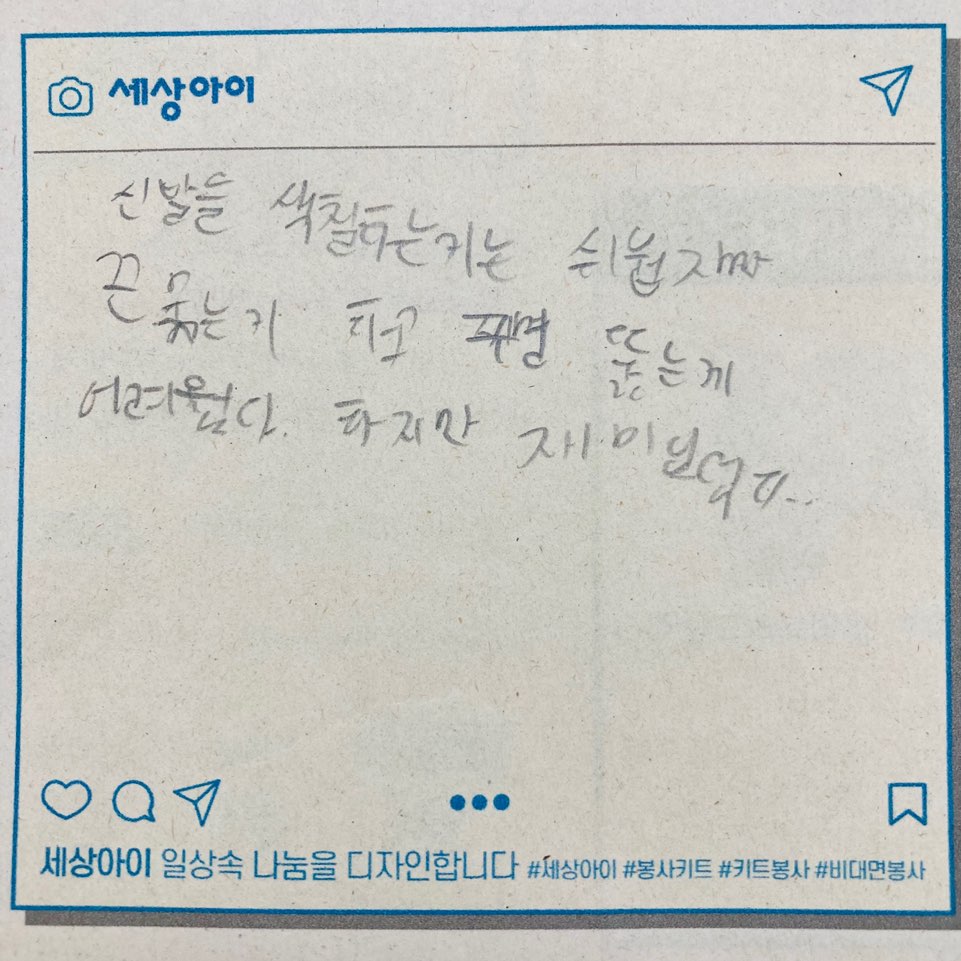 세상아이
신발을 색칠하는거는 쉬웠지만
끈 묶는거 하고 뚫는게
어려웠다. 하지만 재미있었다..
세상아이 일상속 나눔을 디자인합니다 #세상아이 #봉사키트 #키트봉사 #비대면봉사